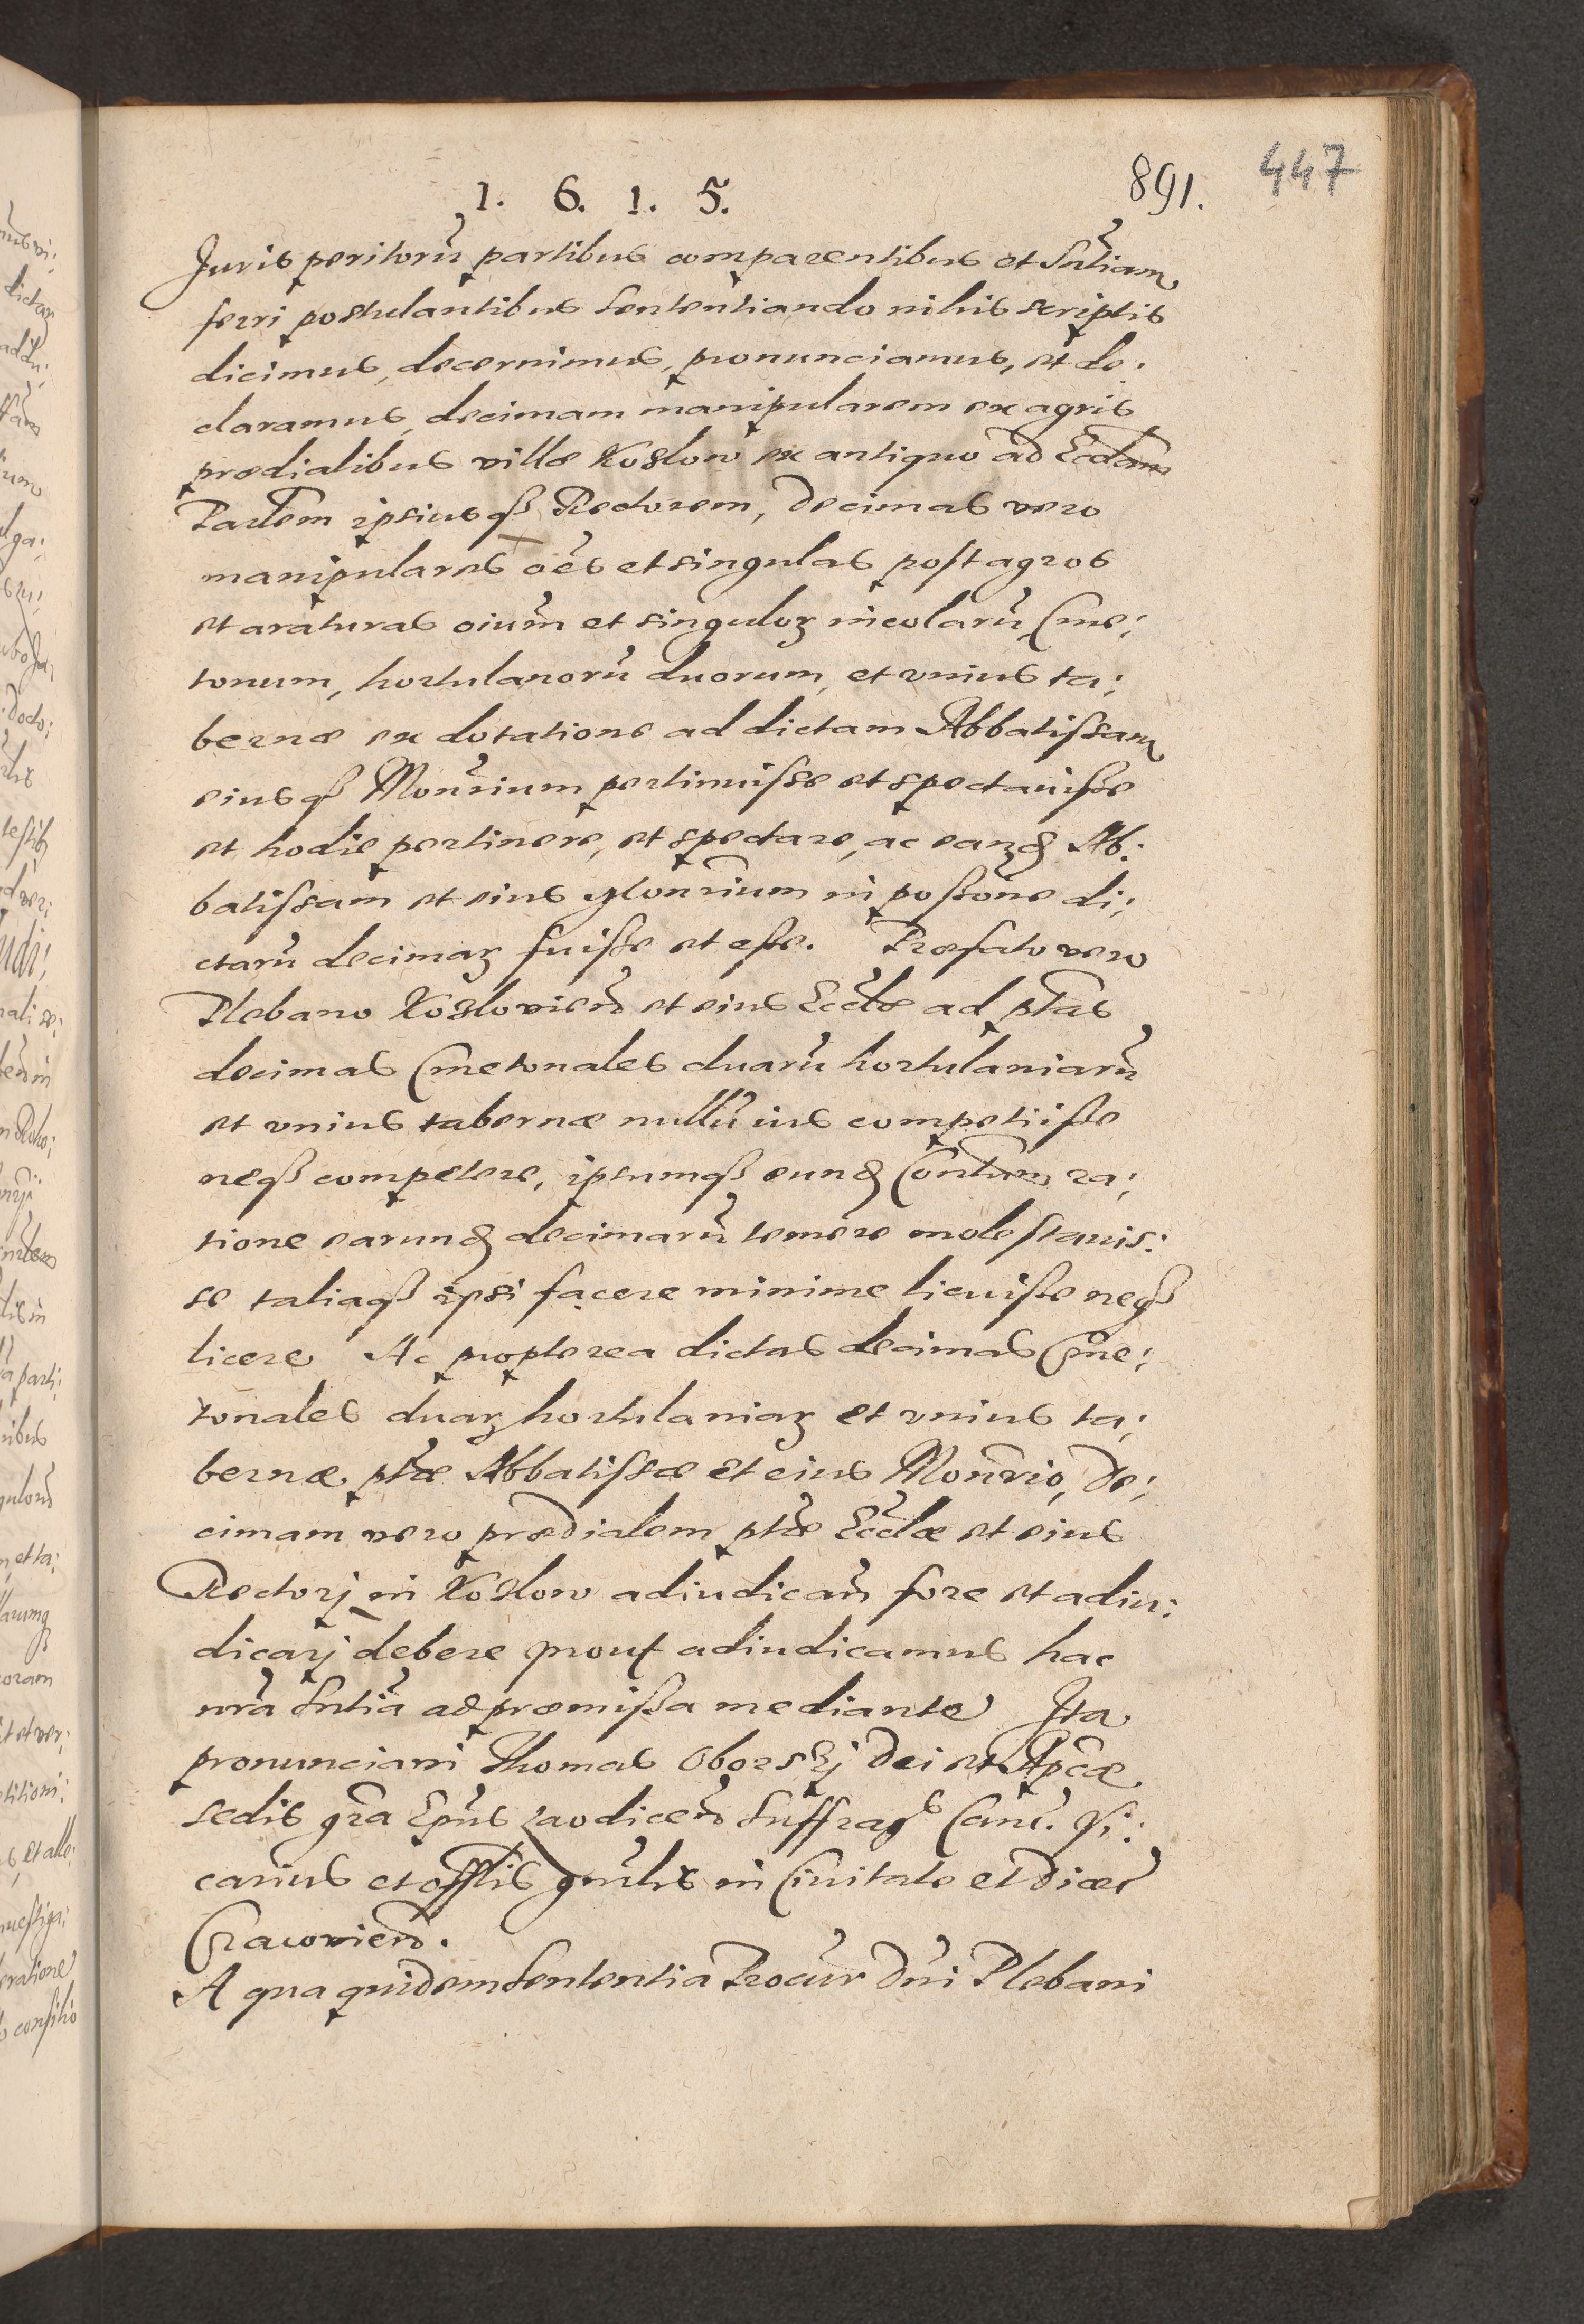 1. 6. 1. 5.
891. 447
Juris peritorũ partibus comparentibus et Sñtiam
ferri postulantibus sententiando in his scriptis
dicimus, decernimus, pronunciamus, et de:
claramus, decimam manipularem ex agris
prædialibus villæ Kozlow ex antiquo ad Eccłam
Parłem ipsiusq₃ Rectorem, Decimas vero
manipulares oẽs et singulas post agros
et araturas oiũm et singuloꝝ incolarũ Cme:
tonum, hortulanorũ duorum, et vnius ta:
bernæ ex dotatione ad dictam Abbatissam
eiusq₃ Mon̄rium pertinuisse et spectauisse
et hodie pertinere, et spectare, ac eand Ab:
batissam et eius Mon̄rium in posõne di:
ctarũ decimaꝝ fuisse et esse. Præfato vero
Plebano Kozlovień et eius Eccłæ ad ptas
decimas Cmetonales duarũ hortulaniarũ
et vnius tabernæ nullũ ius competiisse
neq₃ competere, ipsumq₃ eund Conłum ra:
tione earund decimarũ temere molestauis:
se taliaq₃ ipsi facere minime licuisse neq₃
licere Ac propterea dictas decimas Cme:
tonales duaꝝ hortulaniaꝝ et vnius ta:
bernæ ptæ Abbatissæ et eius Mon̄rio, De:
cimam vero prædialem ptæ Eccłæ et eius
Rectorj in Kozlow adiudicañ fore et adiu:
dicarj debere prout adiudicamus hac
nrã Sñtiã ad præmissa mediante Ita
pronunciaui Thomas Oborskj Dei et Apcæ
sedis grã Epũs Laodiceñ Suffrags Crac. Vi:
carius et offłis gnłis in Ciuitate et Diæc
Cracovień.
A qua quidem sententia Procur Dñi Plebani